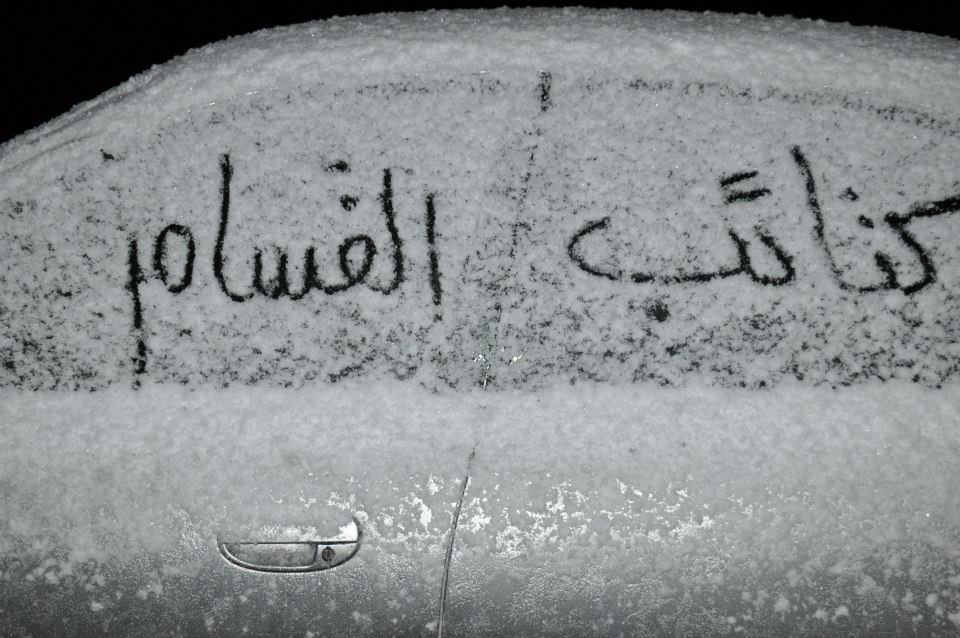 كتائب القسام